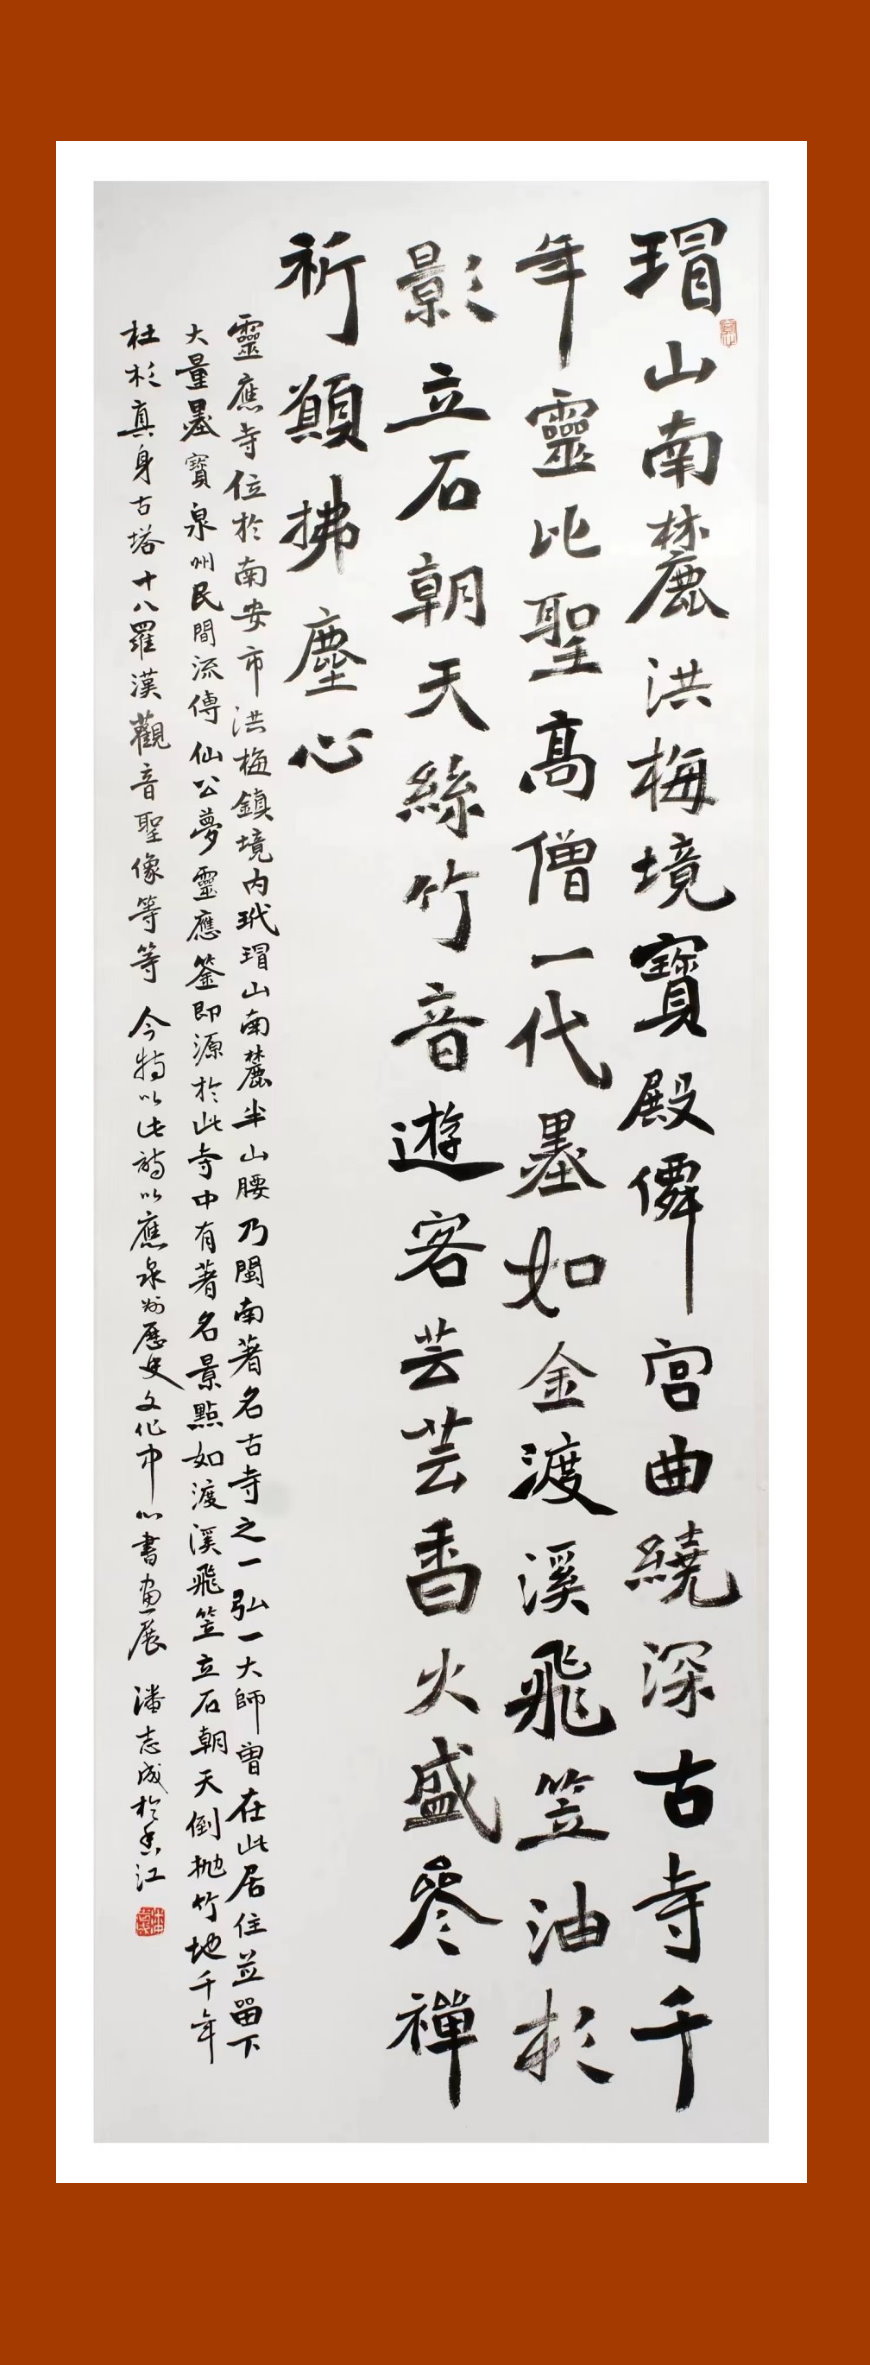 瑁山南麓洪梅境寶殿僊宮曲繞深古寺千
年靈比聖高僧一代墨如金渡溪飛笠油杉
影立石朝天絲竹音遊客芸芸香火盛參禪
祈願拂塵心
靈應寺位於南安市洪梅鎮境内玳瑁山南麓半山腰乃閩南著名古寺之一弘一大師曾在此居住並留下
大量墨寶泉州民間流傳仙公夢靈應籤即源於此寺中有著名景點如渡溪飛笠立石朝天倒抛竹地千年
杜杉真身古塔十八羅漢觀音聖像等等今特以此詩以應泉州歷史文化中心書畫展潘志成於香江